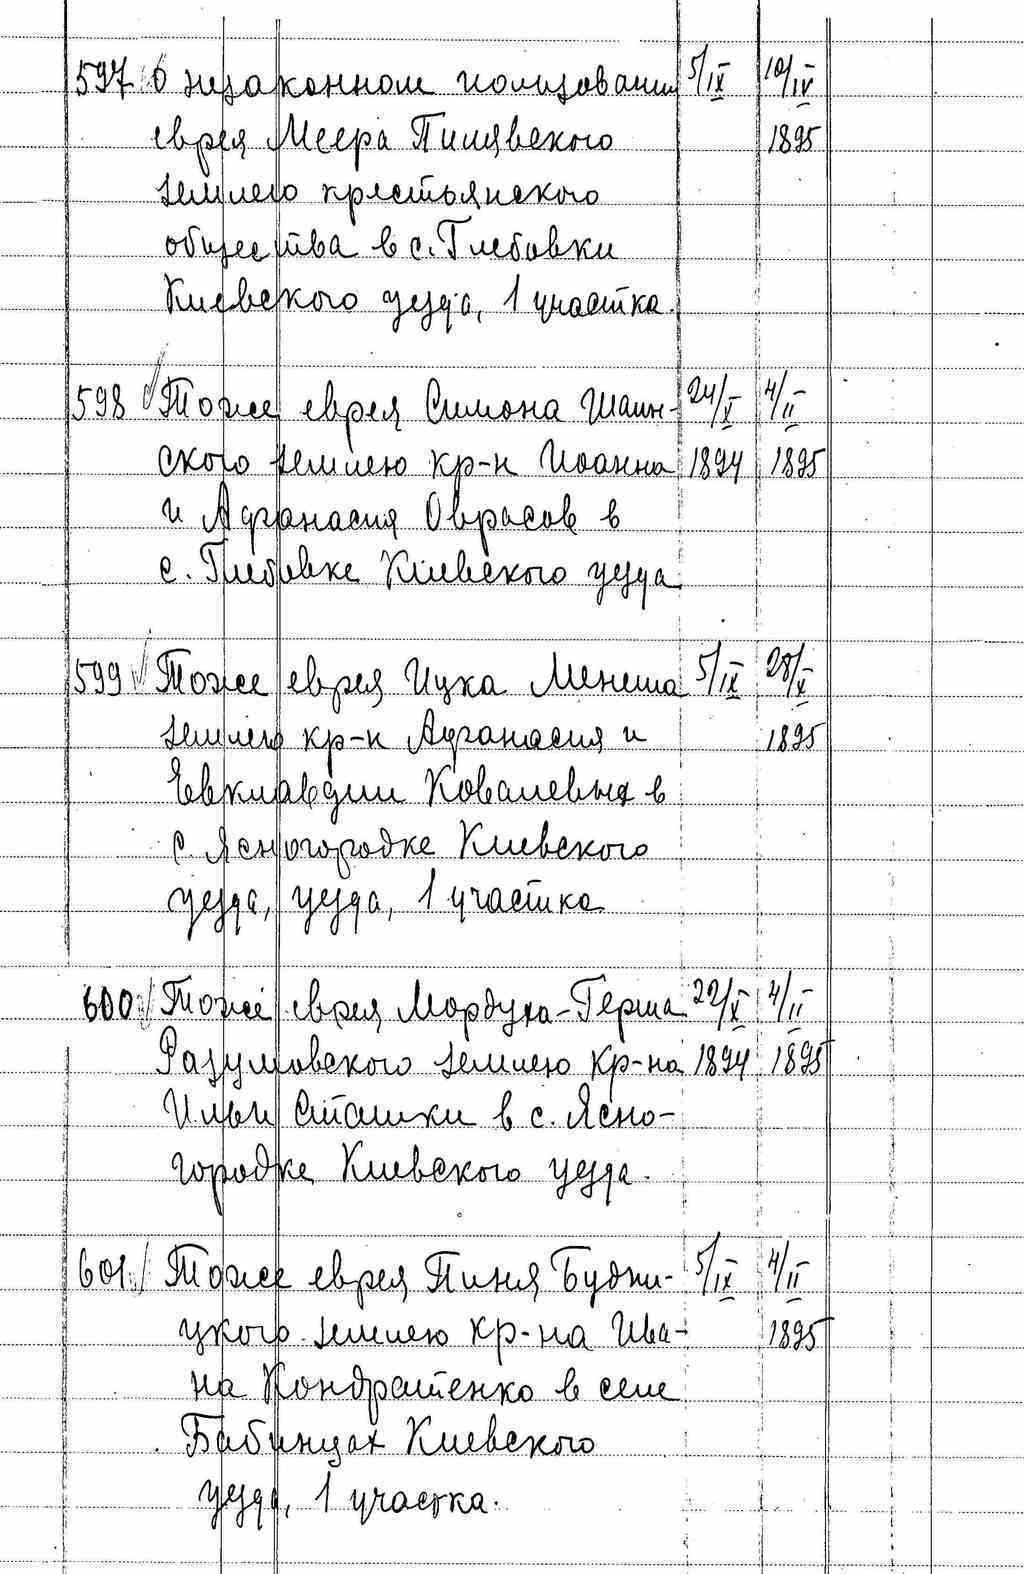 597 О незаконном пользовании 5/IX 10/IV
еврея Меера Пищявского 1895
землею крестьянского
общества в с. Глебовки
Киевского уезда, 1 участка.
598 Тоже еврея Симона Шаин- 24/X 4/II
ского землею кр-н Иоанна 1894 1895
и Афанасия Оврасов в
с. Глебовке Киевского уезда
599 Тоже еврея Ицка Менеша 5/IX 28/X
землею кр-н Афанасия и 1895
Евклавдии Ковалевых в
с. Ясногородке Киевского
уезда, уезда, 1 участка
600 Тоже еврея Мордуха-Герша 22/X 4/II
Разумовского землею кр-на 1894 1895
Ильи Сташки в с. Ясно-
городке Киевского уезда.
601 Тоже еврея Пиня Будни- 5/IX 4/II
цкого землею кр-на Ива- 1895
на Кондратенко в селе
Бабинцах Киевского
уезда, 1 участка.